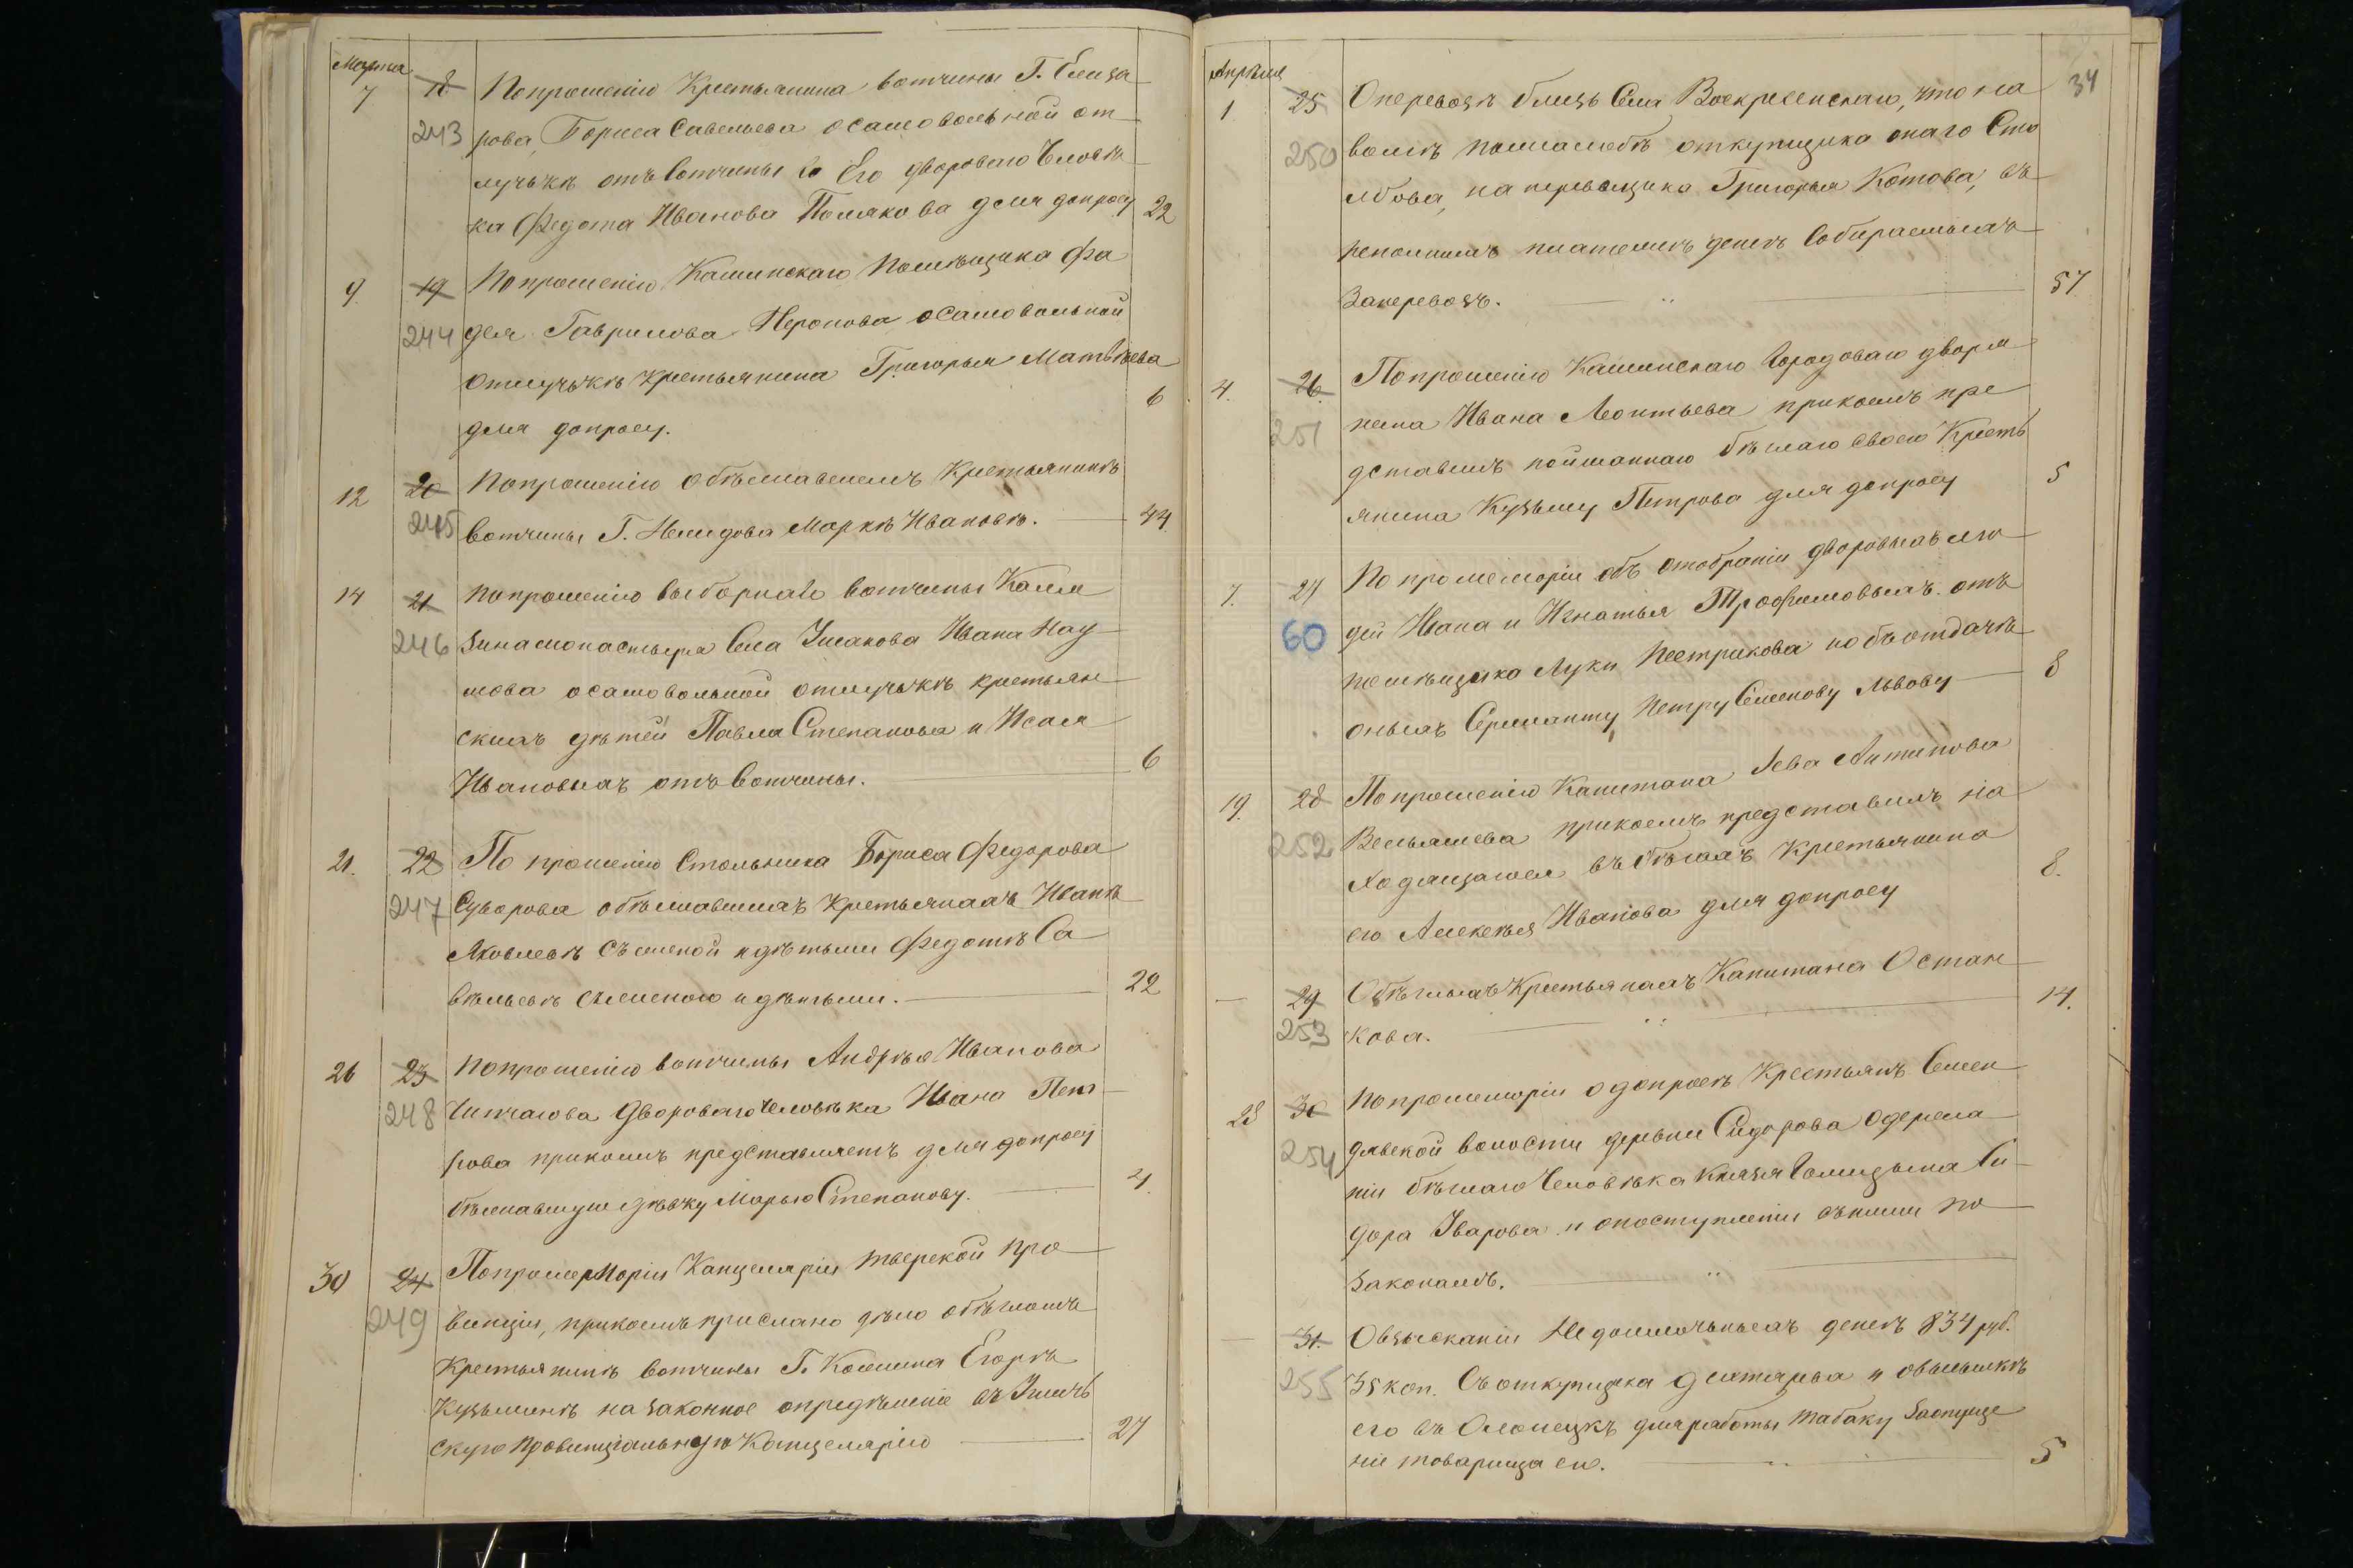 Марта
7 18 Попрошенію Крестьянина вотчины Г. Елиза
243 рова, Бориса Савельева осамовольной от
лучькѣ отъ вотчины Его двороваго Человѣ
ка Федота Иванова Полякова для допросу 22
9 19 Попрошенію Кашинскаго Помѣщика Фа
244 дея Гаврилова Неронова осамовольной
отлучькѣ крестьянина Григорья Матвѣева
для допросу. 6
12 20 Попрошенію обѣжавшемъ Крестьянинѣ
245 вотчины Г. Нелидова Маркѣ Ивановѣ. 44
14 21 попрошенію выборнаго вотчины Каля
246 зина монастыря Села Ушакова Ивана Нау
мова осамовольной отлучькѣ крестьян
скихъ дѣтей Павла Степанова и Исая
Ивановыхъ отъ вотчины. 6
21. 22 По прошенію Стольника Бориса Федорова
247 Суворова обѣжавшихъ Крестьянахъ Иванѣ
Яковлевѣ съ женой и дѣтьми Федотѣ Са
вѣльевѣ съ женою и дѣтьми. 22
26 23 попрошенію вотчины Андрѣя Иванова
248 Чичагова Двороваго человѣка Ивана Пет
рова прикоемъ представляетъ для допросу
бѣжавшую дѣвку Марью Степанову. 4
30 24 Попромемморіи Канцеляріи тверской про
249 винціи, прикоемъ прислано дѣло обѣгломъ
Крестьянинѣ вотчины Г. Егоркѣ
Кузьминѣ на законное опредѣленіе въ Углич
скую Провинціальную Канцелярію 27
34
Апрѣля
1. 25 Оперевозѣ близь Села Воскресенскаго, что на
250 волгѣ пожалобѣ откупщика онаго Сто
лбова, на перевощика Григорья Котова, въ
неполномъ платежѣ денегъ собираемыхъ
Заперевозъ. 57
4. 26. Попрошенію Кашинскаго Городоваго дворя
251 нина Ивана Леонтьева прикоемъ пре
дставилъ пойманнаго бѣглаго своего Кресть
янина Кузьму Петрова для допросу 5
7. 27 По промеморіи объ отобраніи дворовыхъ лю
60 дей Ивана и Игнатья Трофимовыхъ отъ
помѣщика Луки Пестрикова иобъ отдачѣ
оныхъ Сержанту Петру Семенову Львову 8
19. 28 Попрошенію Капитана Лева Антипова
252 прикоемъ представилъ на
ходящагося въ бѣгахъ Крестьянина
его Алексѣя Иванова для допросу 8.
— 29 Обѣглыхъ Крестьянахъ Капитана Остан
253 кова. 14.
28 30 Попромеморіи одопросѣ Крестьянъ Семен
254 дяевской волости деревни Сидорова Одержа
ніи бѣглаго Человѣка Князя Голицына Си
дора Уварова и опоступленіи съними по
законамъ.
— 31. Овзысканіи Недоимочныхъ денегъ 834 руб.
255 35 коп. Съ откупщика Дехтярева и овысылкѣ
его въ Олонецкъ для работы табаку Заопуще
ніе товарища ею. 5